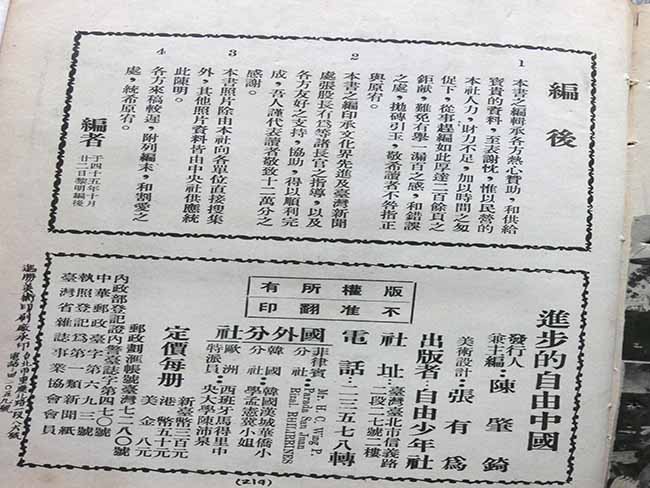 編後
1 本書之編輯承各方熱心贊助，和供給
寶貴的資料，至表謝忱，惟以民營的
本社人力，財力不足，加以時間之匆
促下，從事趕編如此厚達二百餘頁之
鉅獻，難免有舉一漏百之感，和錯誤
之處，拋磚引玉，敬希讀者不吝指正
與原宥。
2 本書之編印承文化界先進及臺灣新聞
處張股長有爲等諸長官之指導，以及
各方友好之支持，協助，得以順利完
成，吾人謹代表讀者敬致十二萬分之
感謝。
3 本書照片除由本社向各單位直接搜集
外，其他照片資料皆由中央社供應統
此陳明。
4 各方來稿較遲，附列編末，和割愛之
處，統希原宥。
編者
于四十五年十月
廿二日黎明編後
版權所有
不准翻印
進步的自由中國
發行人
兼主編：陳肇錡
美術設計：張有爲
出版者：自由少年社
社址：臺灣臺北市信義路
二段二七號二樓
電話：二三五七八轉
國外分社
菲律賓
分社：Mr. H. C. Wing P.
Rizal PHILIPPINES
韓國
分社：韓國漢城華僑小
學孟憲蓂小姐
歐洲
特派員：西班牙馬得里中
央大學陳沛泉
定價每册
新臺幣三百元
港幣五十元
美金八元
郵政劃滙帳號臺灣七二八〇號
內政部登記證內警臺誌字第四七〇號
中華郵政臺字第六九三號
執照登記爲第一類新聞紙
臺灣省雜誌事業協會會員
(219)